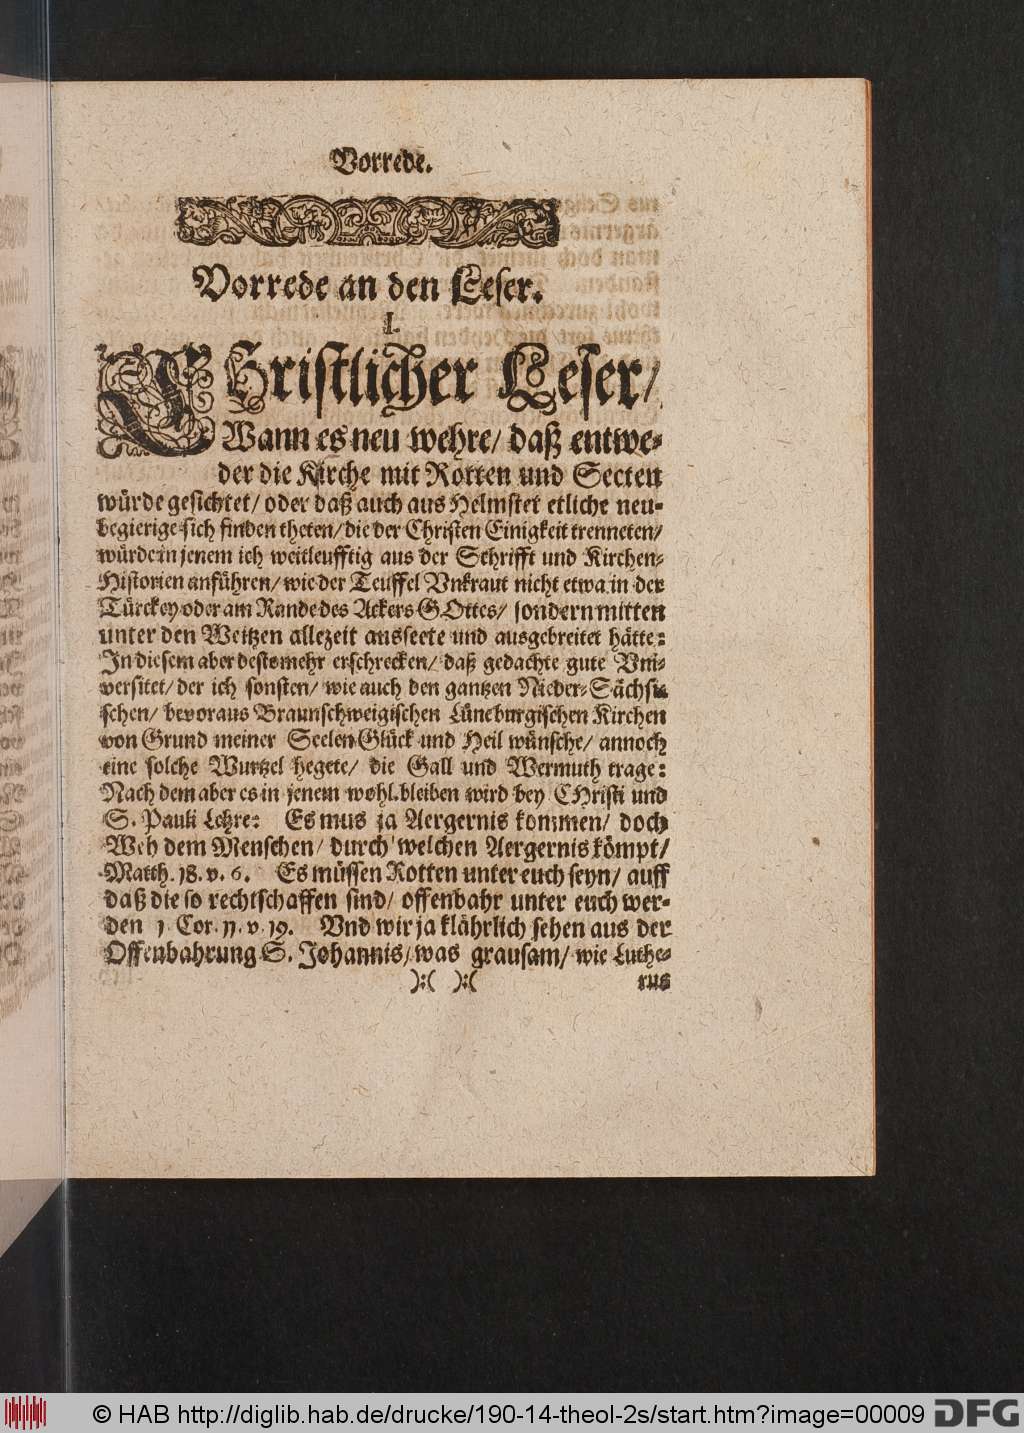 Vorrede.
Vorrede an den Leser.
I.
CHristlicher Leser/
Wann es neu wehre/ daß entwe-
der die Kirche mit Rotten und Secten
würde gesichtet/ oder daß auch aus Helmstet etliche neu-
begierige sich finden theten/ die der Christen Einigkeit trenneten/
würde in jenem ich weitleufftig aus der Schrifft und Kirchen-
Historien anführen/ wie der Teuffel Vnkraut nicht etwa in der
Türckey oder am Rande des Ackers GOttes/ sondern mitten
unter den Weitzen allezeit ausseete und ausgebreitet hätte:
In diesem aber desto mehr erschrecken/ daß gedachte gute Vni-
versitet/ der ich sonsten/ wie auch den gantzen Nieder-Sächsi-
schen/ bevoraus Braunschweigischen Lüneburgischen Kirchen
von Grund meiner Seelen Glück und Heil wünsche/ annoch
eine solche Wurtzel hegete/ die Gall und Wermuth trage:
Nach dem aber es in jenem wohl bleiben wird bey CHristi und
S. Pauli Lehre: Es mus ja Aergernis kommen/ doch
Weh dem Menschen/ durch welchen Aergernis kömpt/
Matth. 18. v. 6. Es müssen Rotten unter euch seyn/ auff
daß die so rechtschaffen sind/ offenbahr unter euch wer-
den 1 Cor. 11. v. 19. Vnd wir ja klährlich sehen aus der
Offenbahrung S. Johannis/ was grausam/ wie Luthe-
):( ):( rus
© HAB http://diglib.hab.de/drucke/190-14-theol-2s/start.htm?image=00009 DFG